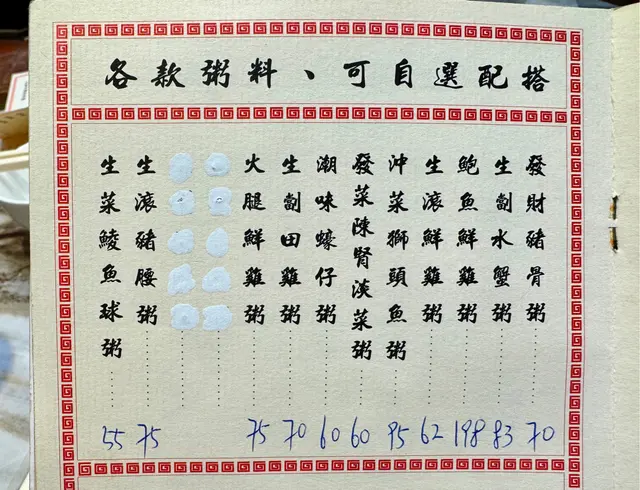 各款粥料、可自選配搭
發財豬骨粥 70
生劏水蟹粥 83
鮑魚鮮雞粥 198
生滾鮮雞粥 62
沖菜獅頭魚粥 95
發菜陳腎淡菜粥 60
潮味蠔仔粥 60
生劏田雞粥 70
火腿鮮雞粥 75
生滾豬腰粥 75
生菜鯪魚球粥 55